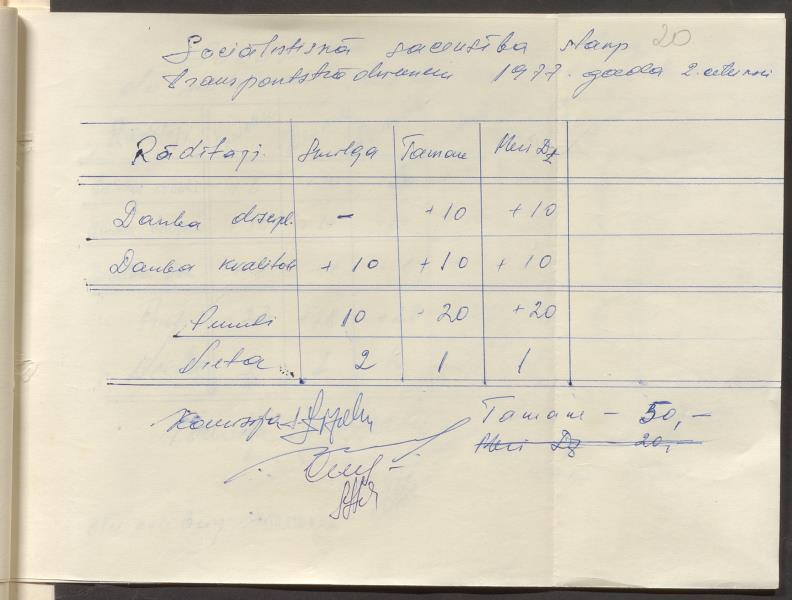 Sociālistiskā sacensība starp 20
transportstrādniekiem 1977. gada 2. ceturksni
Rādītāji. Smilga Tamane Meri Dz
Darba discipl. - +10 +10
Darba kvalitāte +10 +10 +10
Punkti 10 +20 +20
Vieta 2 1 1
Komisija Tamane - 50,-
Meri Dz 20,-